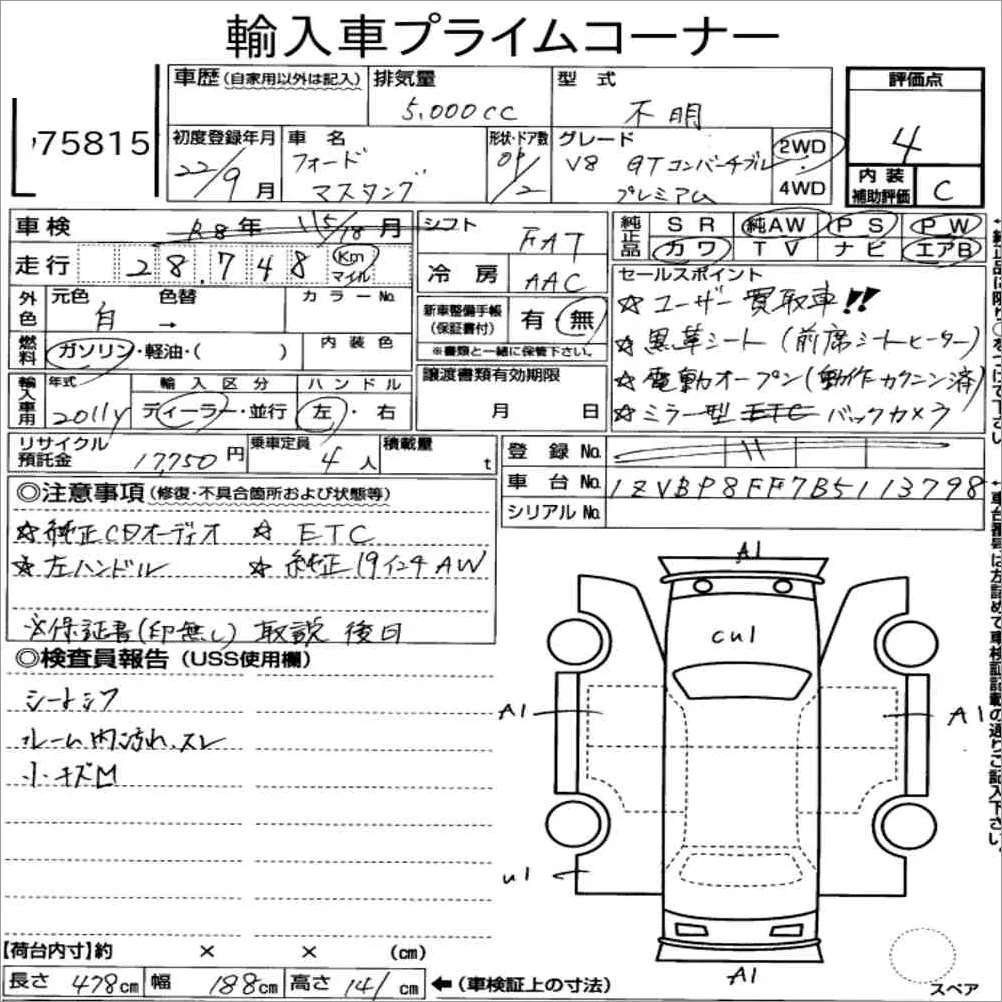 輸入車プライムコーナー
75815
車歴(自家用以外は記入)
排気量
5,000CC
型式
不明
評価点
4
内装補助評価
C
初度登録年月
22/9月
車名
フォード
マスタング
形状・ドア数
OP/2
グレード
V8 GTコンバーチブル
プレミアム
2WD
4WD
車検
R8年 11 5/18月
走行
28,748
Km
マイル
シフト
FAT
冷房
AAC
純正品
SR 純AW PS PW
カワ TV ナビ エアB
外色
元色
白
色替
→
カラーNo.
燃料
ガソリン・軽油・( )
内装色
新車整備手帳(保証書付)
有 無
※書類と一緒に保管下さい。
セールスポイント
☆ユーザー買取車!!
☆黒革シート(前席シートヒーター)
☆電動オープン(動作カクニン済)
☆ミラー型 ETC バックカメラ
輸入車用
年式
2011y
輸入区分
ディーラー・並行
ハンドル
左・右
譲渡書類有効期限
月 日
リサイクル預託金
17750円
乗車定員
4人
積載量
t
登録No.
車台No.
1ZVBP8FF7B5113798
シリアルNo.
◎注意事項(修復・不具合箇所および状態等)
☆純正CDオーディオ ☆ETC
☆左ハンドル ☆純正19インチAW
※保証書(印無し) 取説 後日
◎検査員報告(USS使用欄)
シートシワ
ルーム内汚れ、スレ
小キズM
A1
cu1
A1
A1
u1
A1
スペア
【荷台内寸】約 × × (cm)
長さ 478cm 幅 188cm 高さ 141cm ←(車検証上の寸法)
車台番号は左詰めで車検証記載の通りご記入下さい。